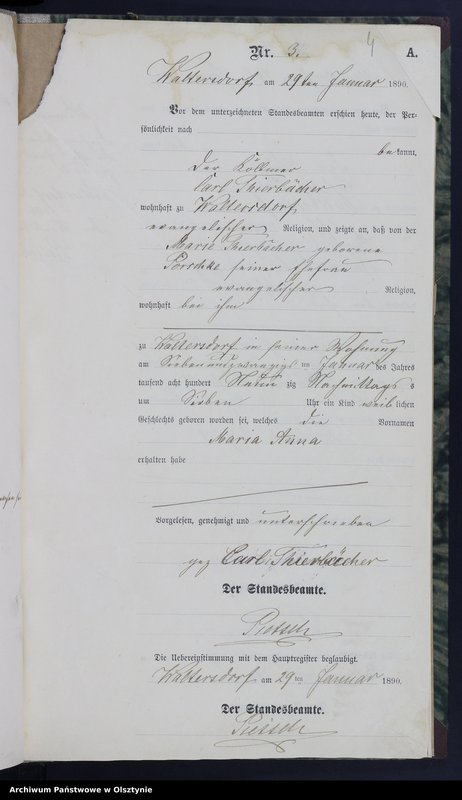 4
Nr. 3. A.
Waltersdorf, am 29ten Januar 1890.
Vor dem unterzeichneten Standesbeamten erschien heute, der Per-
sönlichkeit nach
bekannt,
der Köllmer
Carl Thierbächer
wohnhaft zu Waltersdorf
evangelischer Religion, und zeigte an, daß von der
Marie Thierbächer geborene
Porschke seiner Ehefrau
evangelischer Religion,
wohnhaft bei ihm
zu Waltersdorf in seiner Wohnung
am Siebenundzwanzigsten Januar des Jahres
tausend acht hundert Neunzig Nachmittags
um Sieben Uhr ein Kind weiblichen
Geschlechts geboren worden sei, welches die Vornamen
Maria Anna
erhalten habe
Vorgelesen, genehmigt und unterschrieben
gez Carl Thierbächer
Der Standesbeamte.
Pietsch
Die Uebereinstimmung mit dem Hauptregister beglaubigt.
Waltersdorf am 29ten Januar 1890.
Der Standesbeamte.
Pietsch
Archiwum Państwowe w Olsztynie